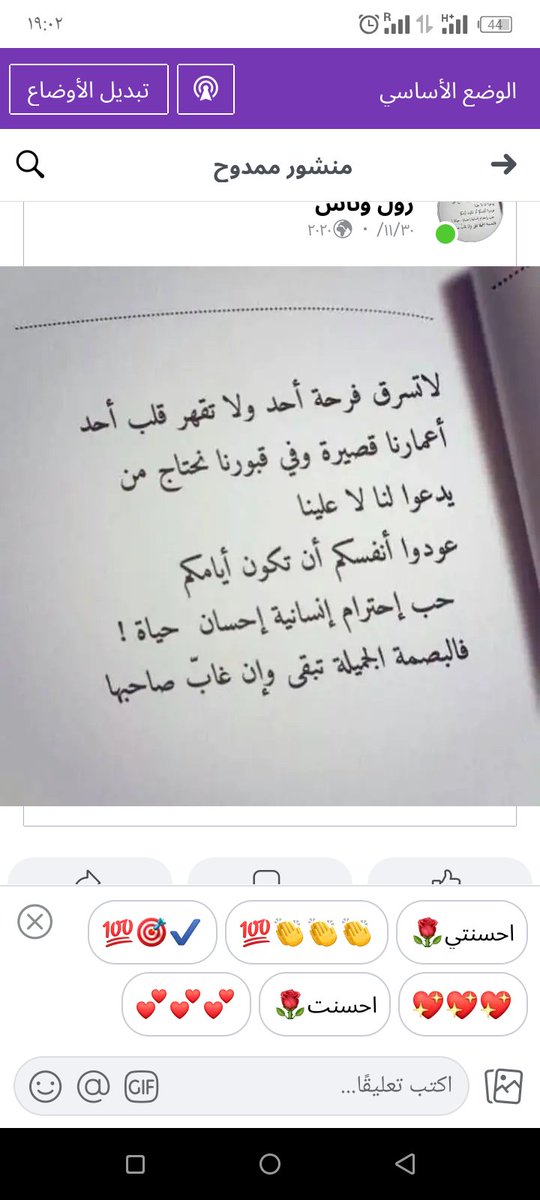 ١٩:٠٢
R
H+
44
الوضع الأساسي
تبديل الأوضاع
منشور ممدوح
٣٠/١١/٢٠٢٠
لاتسرق فرحة أحد ولا تقهر قلب أحد
أعمارنا قصيرة وفي قبورنا نحتاج من
يدعوا لنا لا علينا
عودوا أنفسكم أن تكون أيامكم
حب إحترام إنسانية إحسان حياة !
فالبصمة الجميلة تبقى وإن غابّ صاحبها
احسنتي
احسنت
اكتب تعليقًا...
GIF